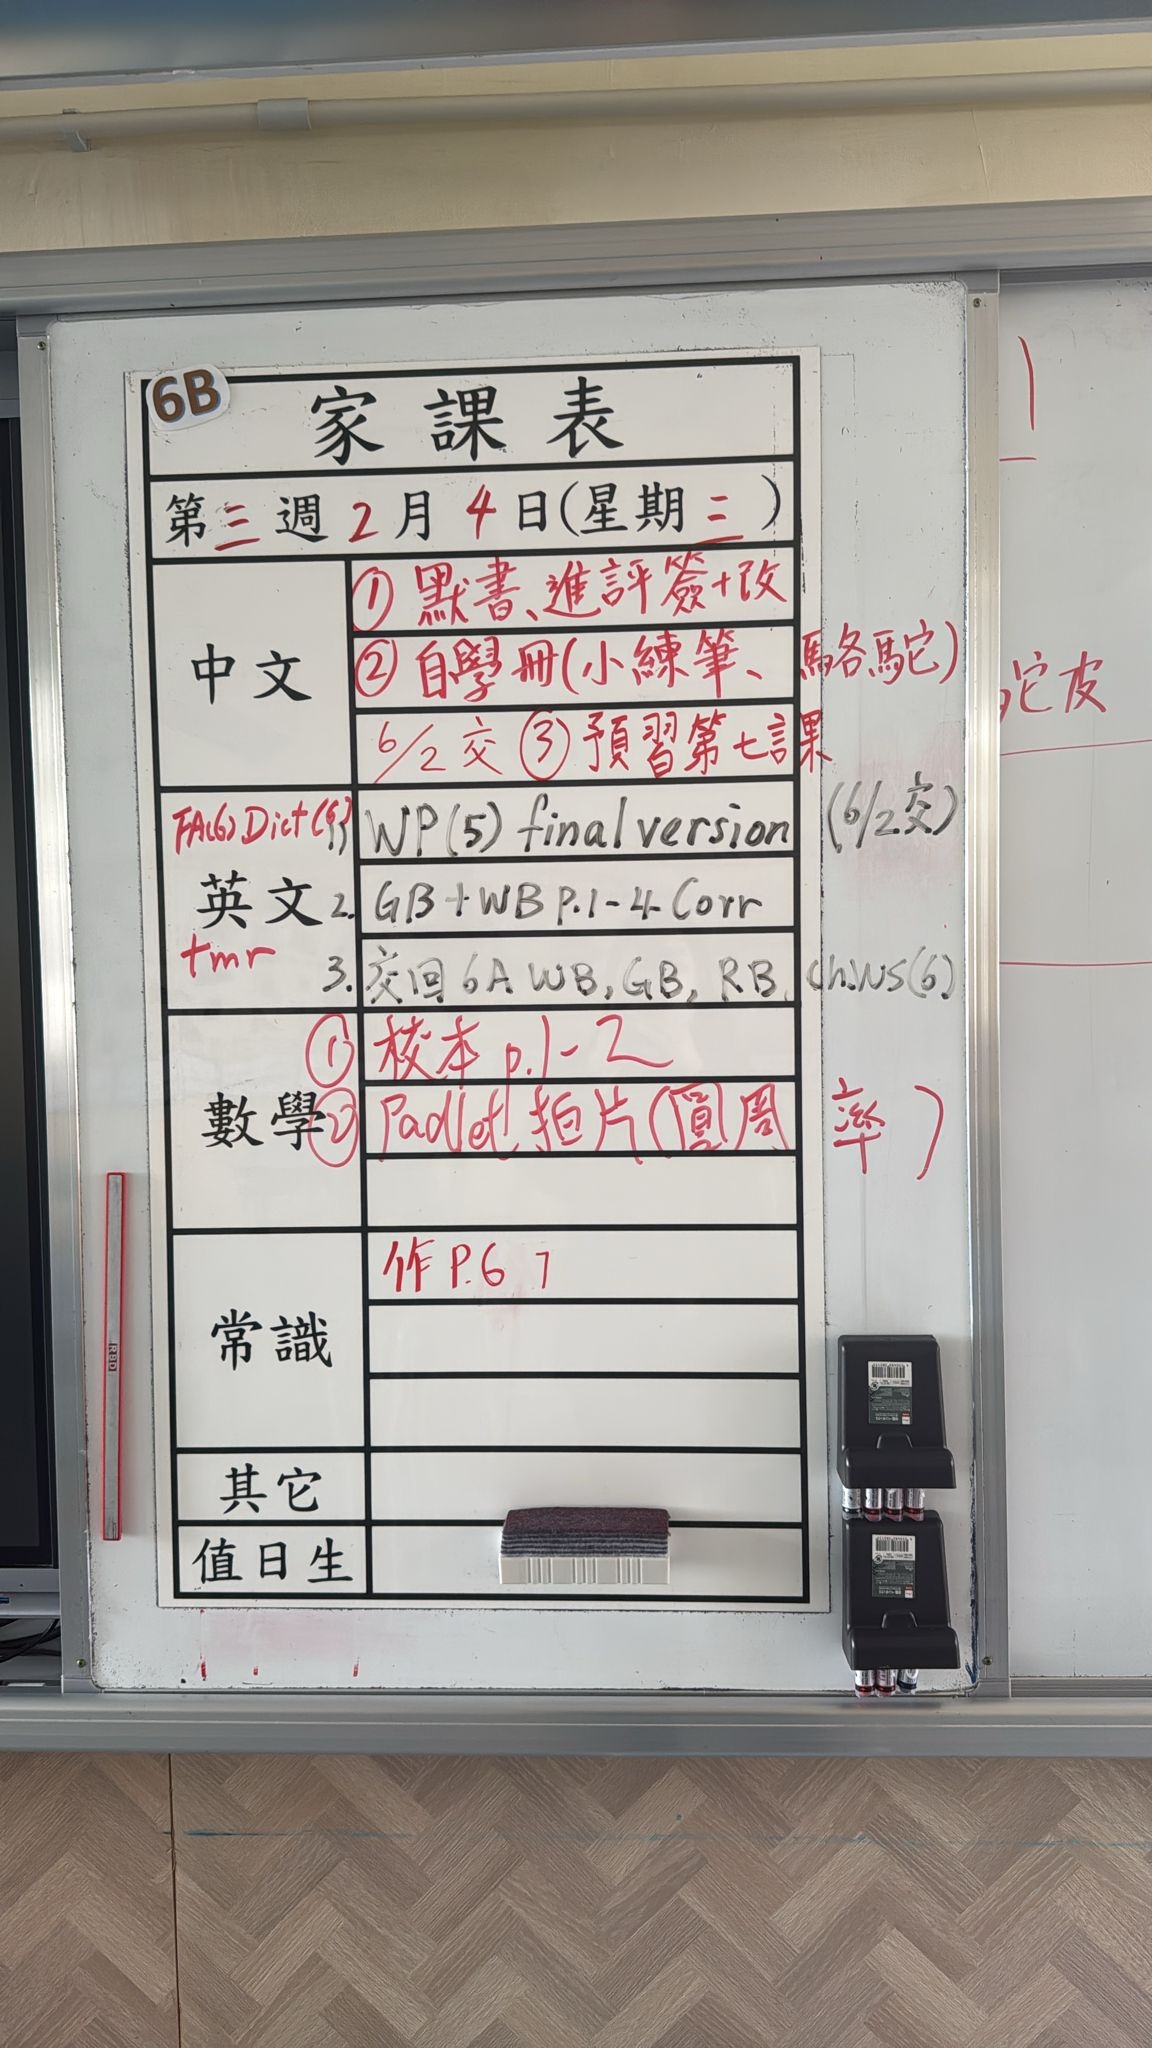 6B
家課表
第三週2月4日(星期三)
中文
① 默書、進評簽+改
② 自學冊(小練筆、駱駝)
6/2交 ③ 預習第七課
駝皮
英文
FA(6) Dict(6)
tmr
1) WP(5) final version (6/2交)
2. GB+WB P.1-4 Corr
3. 交回 6A WB, GB, RB, Ch.WS(6)
數學
① 校本 p.1-2
② Padlet 拍片(圓周率)
常識
作 P.6 7
其它
值日生